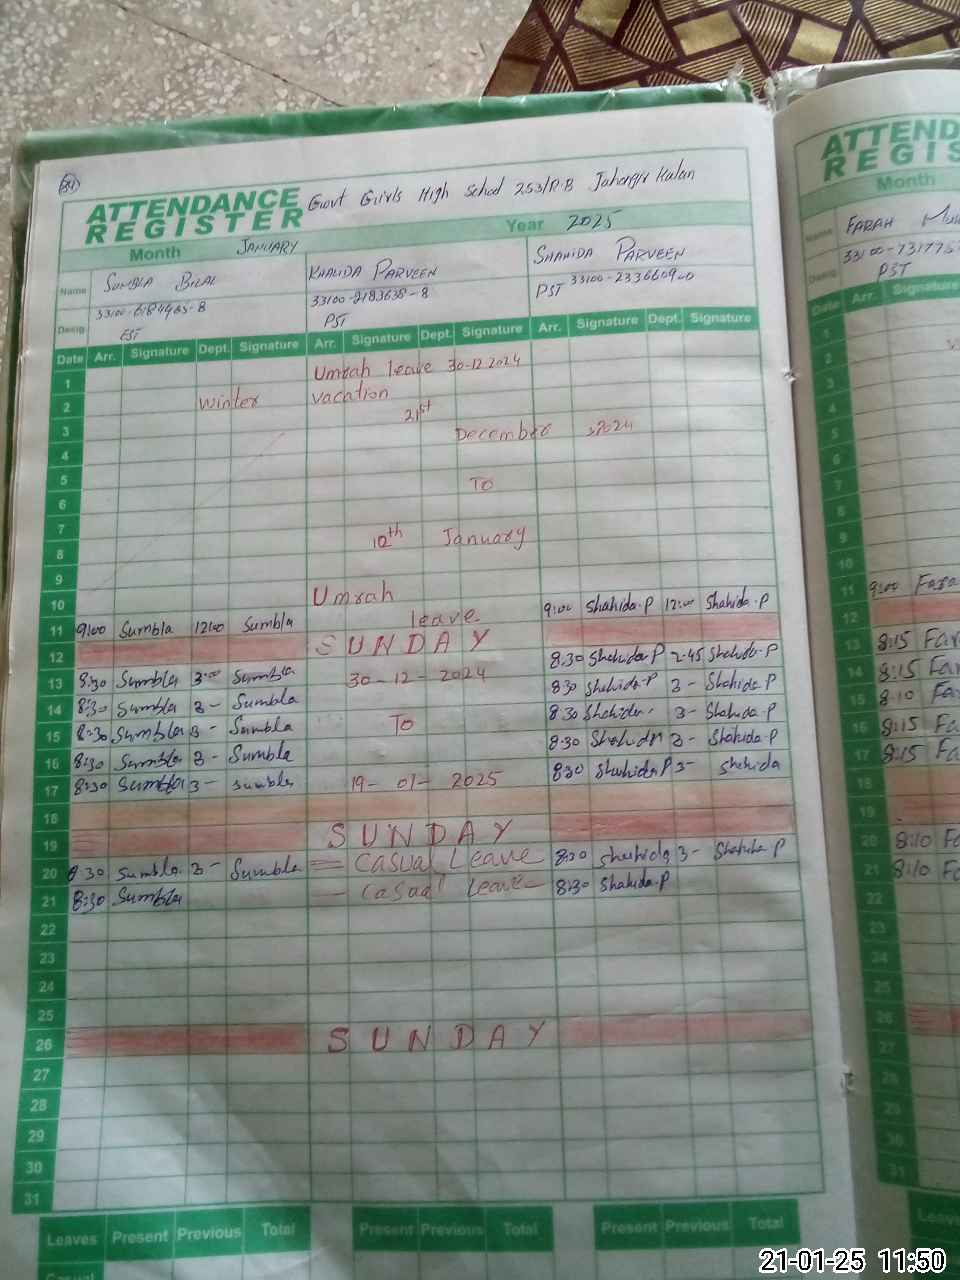 ATTENDANCE REGISTER Govt Girls High School 253/R.B Jahangir Kalan
Month JANUARY Year 2025
Name SUMBLA BILAL KHALIDA PARVEEN SHAHIDA PARVEEN
33100-2183638-8
Desig. EST PST PST
Date Arr. Signature Dept. Signature Arr. Signature Dept. Signature Arr. Signature Dept. Signature
1 Umrah leave 30-12-2024
2 winter vacation
21st
3 December 2024
4
5 TO
6
7 10th January
8
9
10 Umrah
11 9:00 Sumbla 12:00 Sumbla leave 9:00 Shahida.P 12:00 Shahida.P
12 SUNDAY
13 8:30 Sumbla 3:00 Sumbla 30-12-2024 8:30 Shahida P 2:45 Shahida.P
14 8:30 Sumbla 3- Sumbla 8 30 Shahida.P 3- Shahida P
15 8:30 Sumbla 3- Sumbla TO 8 30 Shahida 3- Shahida-P
16 8:30 Sumbla 3- Sumbla 8:30 3- Shahida.P
17 8:30 Sumbla 3- Sumbla 19-01-2025 8:30 Shahida P 3- Shahida
18
19 SUNDAY
20 8 30 Sumbla 3- Sumbla Casual Leave 8:30 Shahida 3- Shahida P
21 8:30 Sumbla Casual leave 8:30 Shahida.P
22
23
24
25
26 SUNDAY
27
28
29
30
31
Leaves Present Previous Total Present Previous Total Present Previous Total
Casual
ATTEND
REGIS
Month
Name FARAH
Desig. PST
Date Arr. Signature
1
2
3
4
5
6
7
8
9
10
11 9:00 Fara
12
13 8:15 Far
14 8:15 Far
15 8:10 Fa
16 8:15 Fa
17 8:15 Fa
18
19
20 8:10 Fa
21 8:10 Fa
22
23
24
25
26
27
28
29
30
31
Leave
21-01-25 11:50